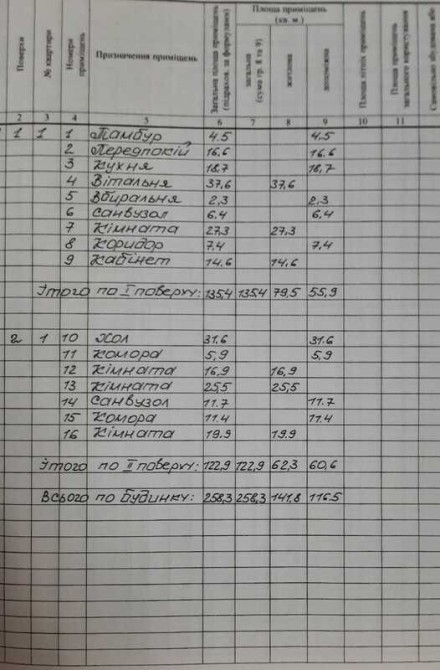 Поверхи
№ квартири
Номери приміщень
Призначення приміщень
Загальна площа приміщень (підрахов. за формулами)
Площа приміщень
(кв. м.)
загальна (сума гр. 8 та 9)
житлова
допоміжна
Площа літніх приміщень
Площа приміщень загального користування
Самовільно збудована або
2 3 4 5 6 7 8 9 10 11
1 1 1 Тамбур 4.5 4.5
2 Передпокій 16,6 16,6
3 Кухня 18,7 18,7
4 Вітальня 37,6 37,6
5 Вбиральня 2,3 2.3
6 Санвузол 6.4 6.4
7 Кімната 27,3 27,3
8 Коридор 7.4 7.4
9 Кабінет 14.6 14.6
Этого по I поверху: 135.4 135.4 79,5 55,9
2 1 10 Хол 31.6 31.6
11 Комора 5,9 5,9
12 Кімната 16,9 16,9
13 Кімната 25,5 25,5
14 Санвузол 11.7 11.7
15 Комора 11.4 11.4
16 Кімната 19.9 19.9
Этого по II поверху: 122,9 122,9 62,3 60,6
Всього по будинку: 258,3 258,3 141,8 116.5